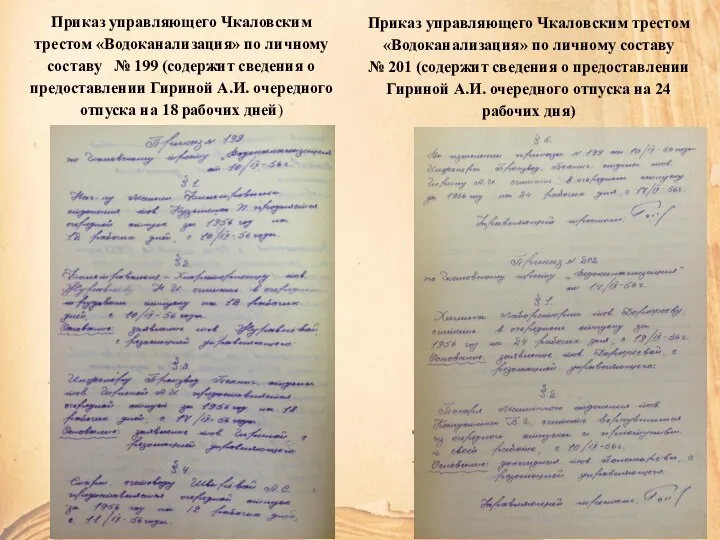 Приказ управляющего Чкаловским
трестом «Водоканализация» по личному
составу № 199 (содержит сведения о
предоставлении Гириной А.И. очередного
отпуска на 18 рабочих дней)
Приказ N 199
по Чкаловскому тресту „Водоканализация"
от 10/IX-56г.
§ 1.
отделения тов. Кузьминых П. предоставляется
очередной отпуск за 1956 год на
12 рабочих дней, с 10/IX-56 года.
§ 2
считать в очередном
отпуску на 12 рабочих
дней, с 10/IX-56 года.
Основание: заявление тов. Журавлевой
с резолюцией управляющего.
§ 3
Инженеру Производ. Технич. отдела
тов. Гириной А.И. предоставляется
очередной отпуск за 1956 год на 18
рабочих дней, с 14/IX-56г.
Основание: заявление тов. Гириной, с
резолюцией управляющего
§ 4
Старш. счетоводу А.С.
предоставляется очередной отпуск
за 1956 год на 12 рабочих дней,
с 11/IX-56 года.
Приказ управляющего Чкаловским трестом
«Водоканализация» по личному составу
№ 201 (содержит сведения о предоставлении
Гириной А.И. очередного отпуска на 24
рабочих дня)
§ 6.
Во изменении приказа N 199 от 10/IX-56 года
Инженера Производ. Технич. отдела тов.
Гирину А.И. считать в очередном отпуску
за 1956 год на 24 рабочих дня, с 14/IX-56г.
Управляющий трестом:
Приказ N 202
по Чкаловскому тресту „Водоканализация"
от 14/IX-56г.
§ 1.
Химика Лаборатории тов.
считать в очередном отпуску за
1956 год на 24 рабочих дня, с 19/IX-56г.
Основание: заявление тов. с
резолюцией управляющего.
§ 2
Токаря отделения тов.
Б.Г. считать вернувшимся
из очередного отпуска и приступившим
к своей работе, с 10/IX-56г.
Основание: докладная тов. с
резолюцией управляющего.
Управляющий трестом: